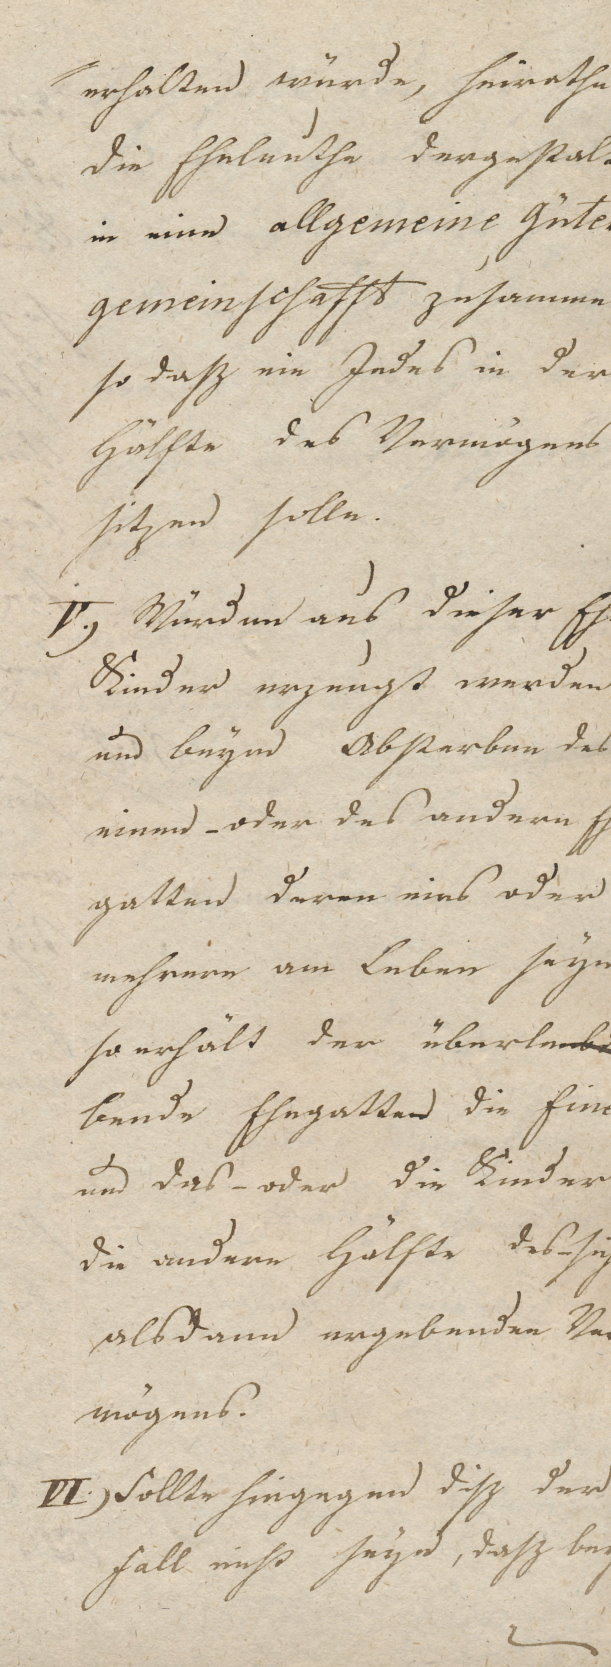 erhalten würde, heirathe
die Eheleuthe dergestal
in eine allgemeine Güte
gemeinschafft zusamme
so daß ein Jedes in der
Hälfte des Vermögens
sitzen solle.
V.) Würden aus dieser Eh
Kinder erzeugt werden
und beym Absterben des
einen - oder des andern Eh
gatten deren eins oder
mehrere am Leben seyn
so erhält der überle
bende Ehegatten die Eine
und das - oder die Kinder
die andere Hälfte des - sich
alsdann ergebenden Ver
mögens.
VI.) Sollte hingegen diß der
Fall nicht seyn, daß bey